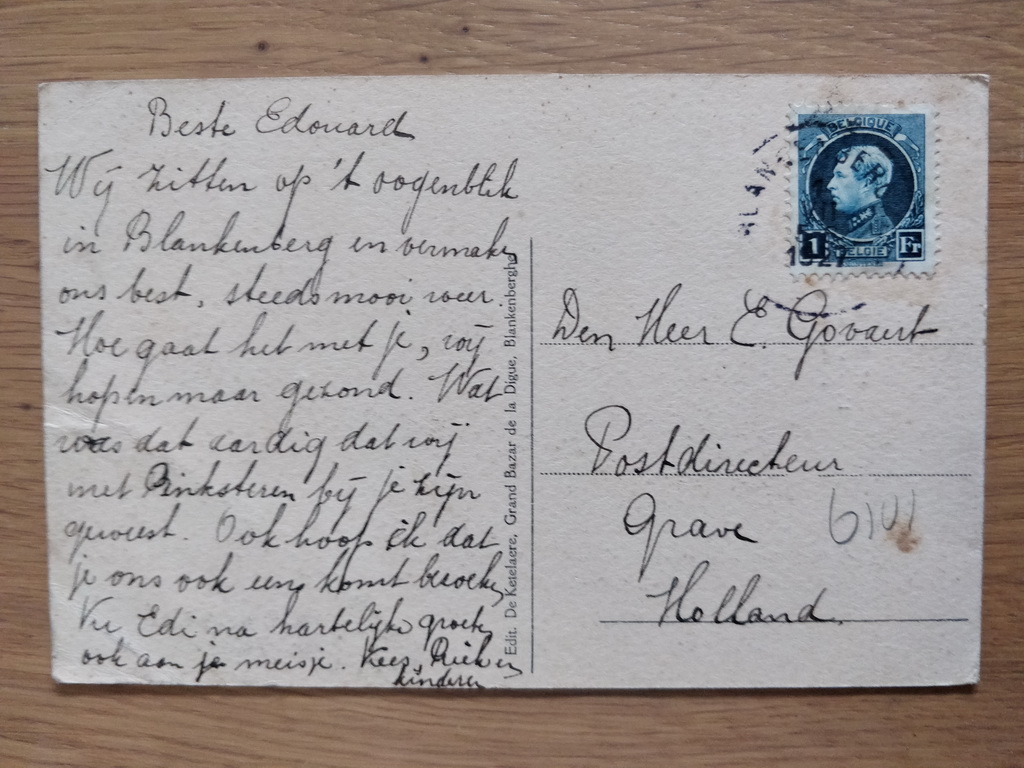 Beste Edouard
Wij zitten op 't oogenblik
in Blankenberg en vermaken
ons best, steeds mooi weer.
Hoe gaat het met je, wij
hopen maar gezond. Wat
was dat aardig dat wij
met Pinksteren bij je zijn
geweest. Ook hoop ik dat
je ons ook eens komt bezoeken
Nu Edi na hartelijke groeten
ook aan je meisje. Kees, Riek en
kinderen
Edit. De Ketelaere, Grand Bazar de la Digue, Blankenberghe
BELGIQUE
1 Fr
BELGIË
1927
Den Heer E. Govaert
Postdirecteur
Grave
Holland.